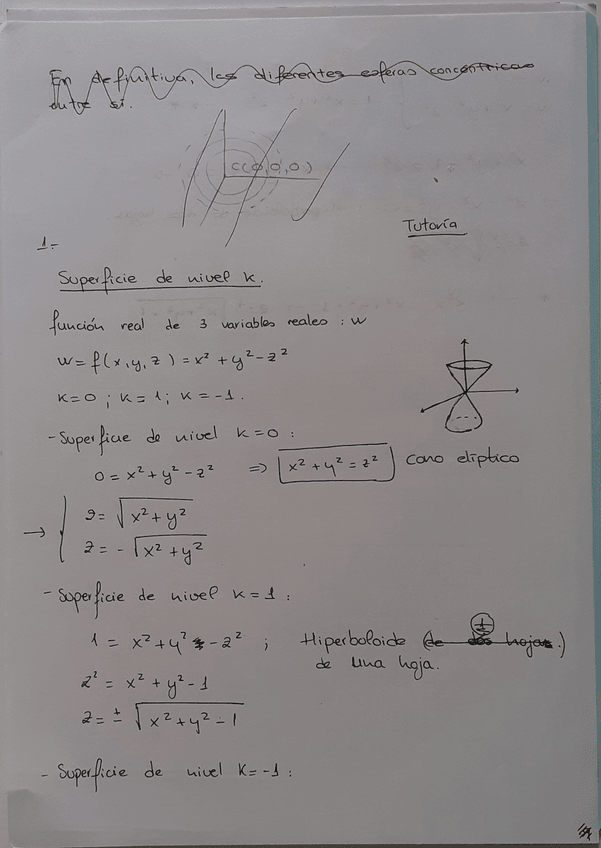 En definitiva, las diferentes esferas concéntricas
entre sí.
C(0,0,0)
Tutoría
1.-
Superficie de nivel k.
función real de 3 variables reales : w
w = f(x,y,z) = x² + y² - z²
k=0 ; k=1 ; k=-1.
- Superficie de nivel k=0 :
0 = x² + y² - z² => x² + y² = z² Cono elíptico
→ { z = √(x² + y²)
z = - √(x² + y²)
- Superficie de nivel k=1 :
1 = x² + y² - z² ; Hiperboloide (de dos hojas.)
de una hoja.
z² = x² + y² - 1
z = ± √(x² + y² - 1)
- Superficie de nivel k=-1 :